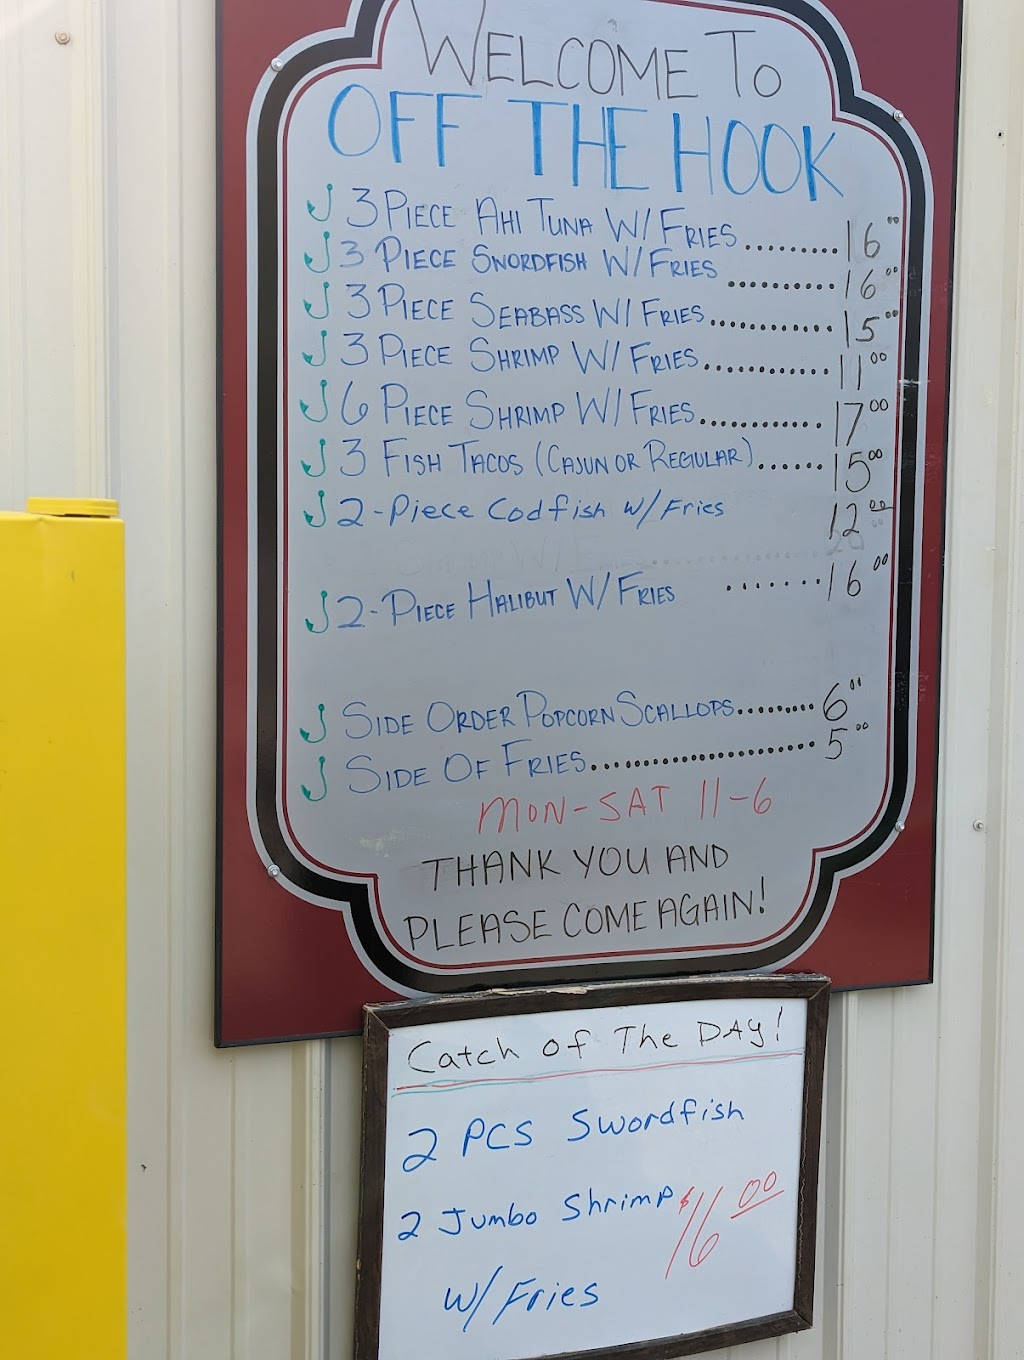 WELCOME TO
OFF THE HOOK
3 PIECE AHI TUNA W/ FRIES.........16⁰⁰
3 PIECE SWORDFISH W/ FRIES..........16⁰⁰
3 PIECE SEABASS W/ FRIES............15⁰⁰
3 PIECE SHRIMP W/ FRIES............11⁰⁰
6 PIECE SHRIMP W/ FRIES............17⁰⁰
3 FISH TACOS (CAJUN OR REGULAR)......15⁰⁰
2-Piece Codfish w/ Fries 12⁰⁰
2-PIECE HALIBUT W/ FRIES .......16⁰⁰
SIDE ORDER POPCORN SCALLOPS.........6⁰⁰
SIDE OF FRIES.....................5⁰⁰
MON-SAT 11-6
THANK YOU AND
PLEASE COME AGAIN!
Catch of The DAY!
2 PCS Swordfish
2 Jumbo Shrimp $16⁰⁰
w/ Fries